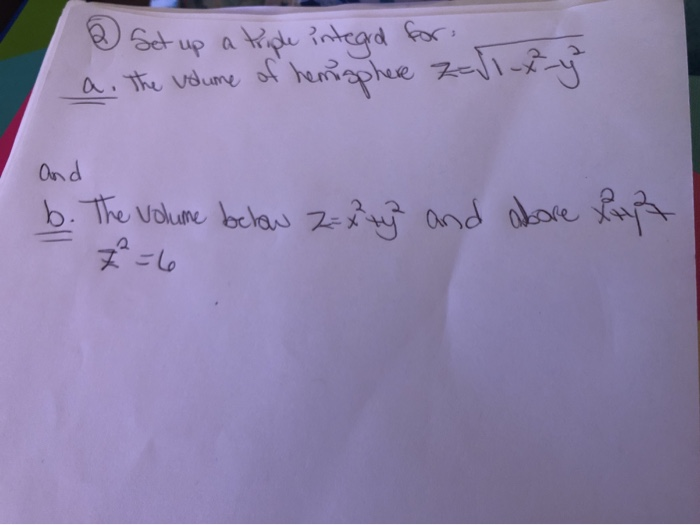 ② Set up a triple integral for:
a. The volume of hemisphere z=√1-x²-y²
and
b. The volume below z=x²+y² and above x²+y²+
z²=6